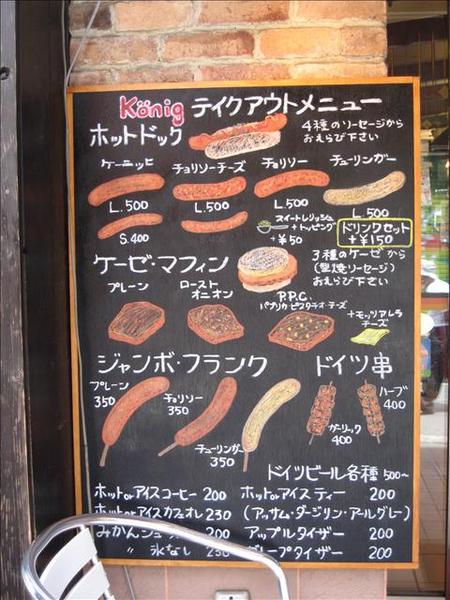 König テイクアウトメニュー
ホットドック
4種のソーセージから
おえらび下さい
ケーニッヒ チョリソーチーズ チョリソー チューリンガー
L.500 L.500 L.500 L.500
S.400
スイートレリッシュ
+トッピング
+¥50
ドリンクセット
+¥150
ケーゼ・マフィン
3種のケーゼから
(型焼ソーセージ)
おえらび下さい
プレーン ロースト
オニオン
P.P.C.
パプリカ・ピスタチオ・チーズ
+モッツアレラ
チーズ
ジャンボ・フランク ドイツ串
プレーン
350
チョリソー
350
チューリンガー
350
ハーブ
400
ガーリック
400
ドイツビール各種 500〜
ホットorアイスコーヒー 200 ホットorアイスティー 200
ホットorアイスカフェオレ 230 (アッサム・ダージリン・アールグレー)
みかんジュ 200 アップルタイザー 200
〃 氷なし 250 グレープタイザー 200